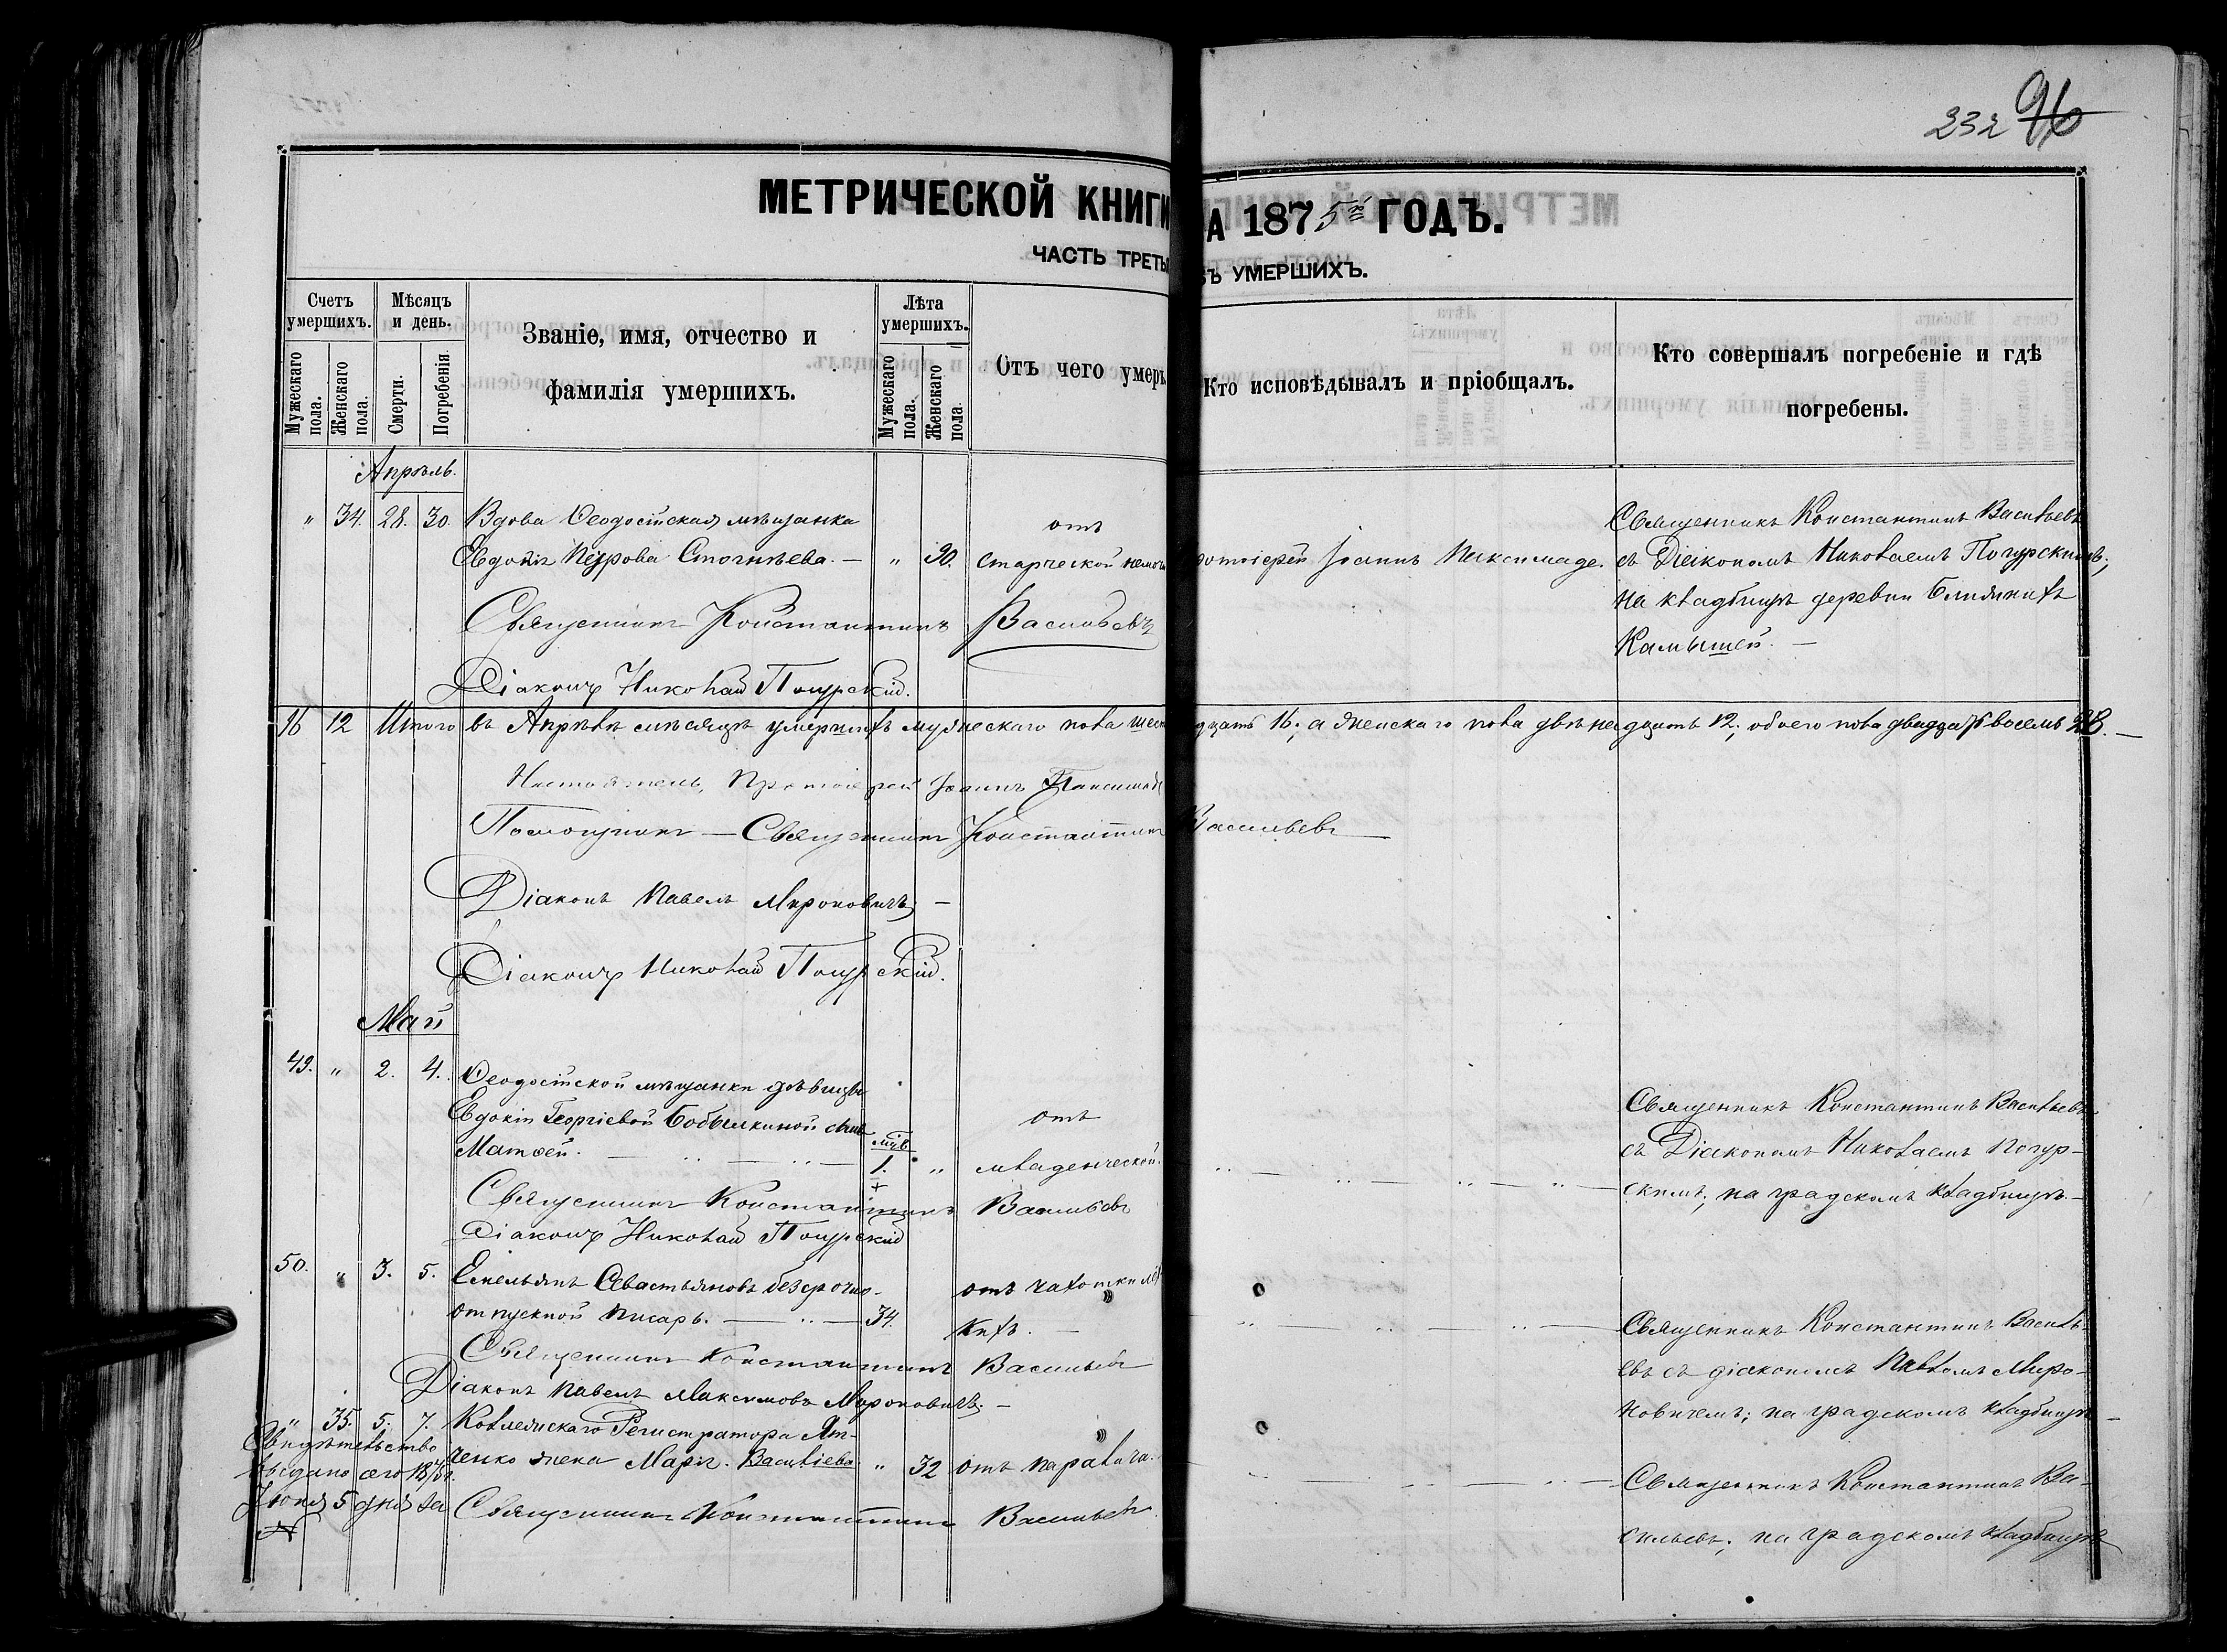 232 96
МЕТРИЧЕСКОЙ КНИГИ
А 1875 го ГОДЪ.
ЧАСТЬ ТРЕТЬ
ВЪ УМЕРШИХЪ.
Счетъ умершихъ.
Мужескаго пола.
Женскаго пола.
Мѣсяцъ и день.
Смерти.
Погребенія.
Званіе, имя, отчество и
фамилія умершихъ.
Лѣта умершихъ.
Мужескаго пола.
Женскаго пола
Отъ чего умеръ
Кто исповѣдывалъ и пріобщалъ.
Кто совершалъ погребеніе и гдѣ
погребены.
Апрѣль.
" 34. 28. 30. Вдова Ѳеодосійская мѣщанка
Евдокія Петрова Стогнѣева. — " 90.
отъ
старческой немощ
отоіерей Іоаннъ
Священникъ Константинъ Васильевъ
съ Діакономъ Николаемъ Погурскимъ;
на кладбищѣ деревни Ближнихъ
Камышей. —
Священникъ Константинъ Васильевъ
Діаконъ Николай Погурскій.
16 12 Итого въ Апрѣлѣ мѣсяцѣ умершихъ мужескаго пола шест
дцать 16; а женскаго пола двѣнадцать 12; обоего пола двадцать восемь 28. —
Настоятель, Протоіерей Іоаннъ
Помощникъ — Священникъ Константинъ Васильевъ
Діаконъ Павелъ Мироновичъ —
Діаконъ Николай Погурскій.
Май
49. " 2. 4. Ѳеодосійской мѣщанки дѣвицы
Евдокіи Георгіевой Бобылкиной сынъ
Матвей. — 1. "
отъ
младенческой.
Священникъ Константинъ Васильевъ
съ Діакономъ Николаемъ Погур-
скимъ; на градскомъ кладбищѣ. —
Священникъ Константинъ Васильевъ
Діаконъ Николай Погурскій
50. " 3. 5. Емельянъ Севастьяновъ безсрочно-
отпускной писарь. — 34.
отъ чахотки лег
кихъ. —
Священникъ Константинъ Василь-
евъ съ діакономъ Павломъ Миро-
новичемъ; на градскомъ кладбищѣ —
Священникъ Константинъ Васильевъ
Діаконъ Павелъ Максимовъ Мироновичъ. —
" 35. 5. 7. Коллежскаго Регистратора Ят-
ченко жена Марія Васильева " 32 отъ паралича.
Свидѣтельство
выдано сего 187
Іюня 5 дня за
№
Священникъ Константинъ Ва-
сильевъ; на градскомъ кладбищѣ
Священникъ Константинъ Васильевъ